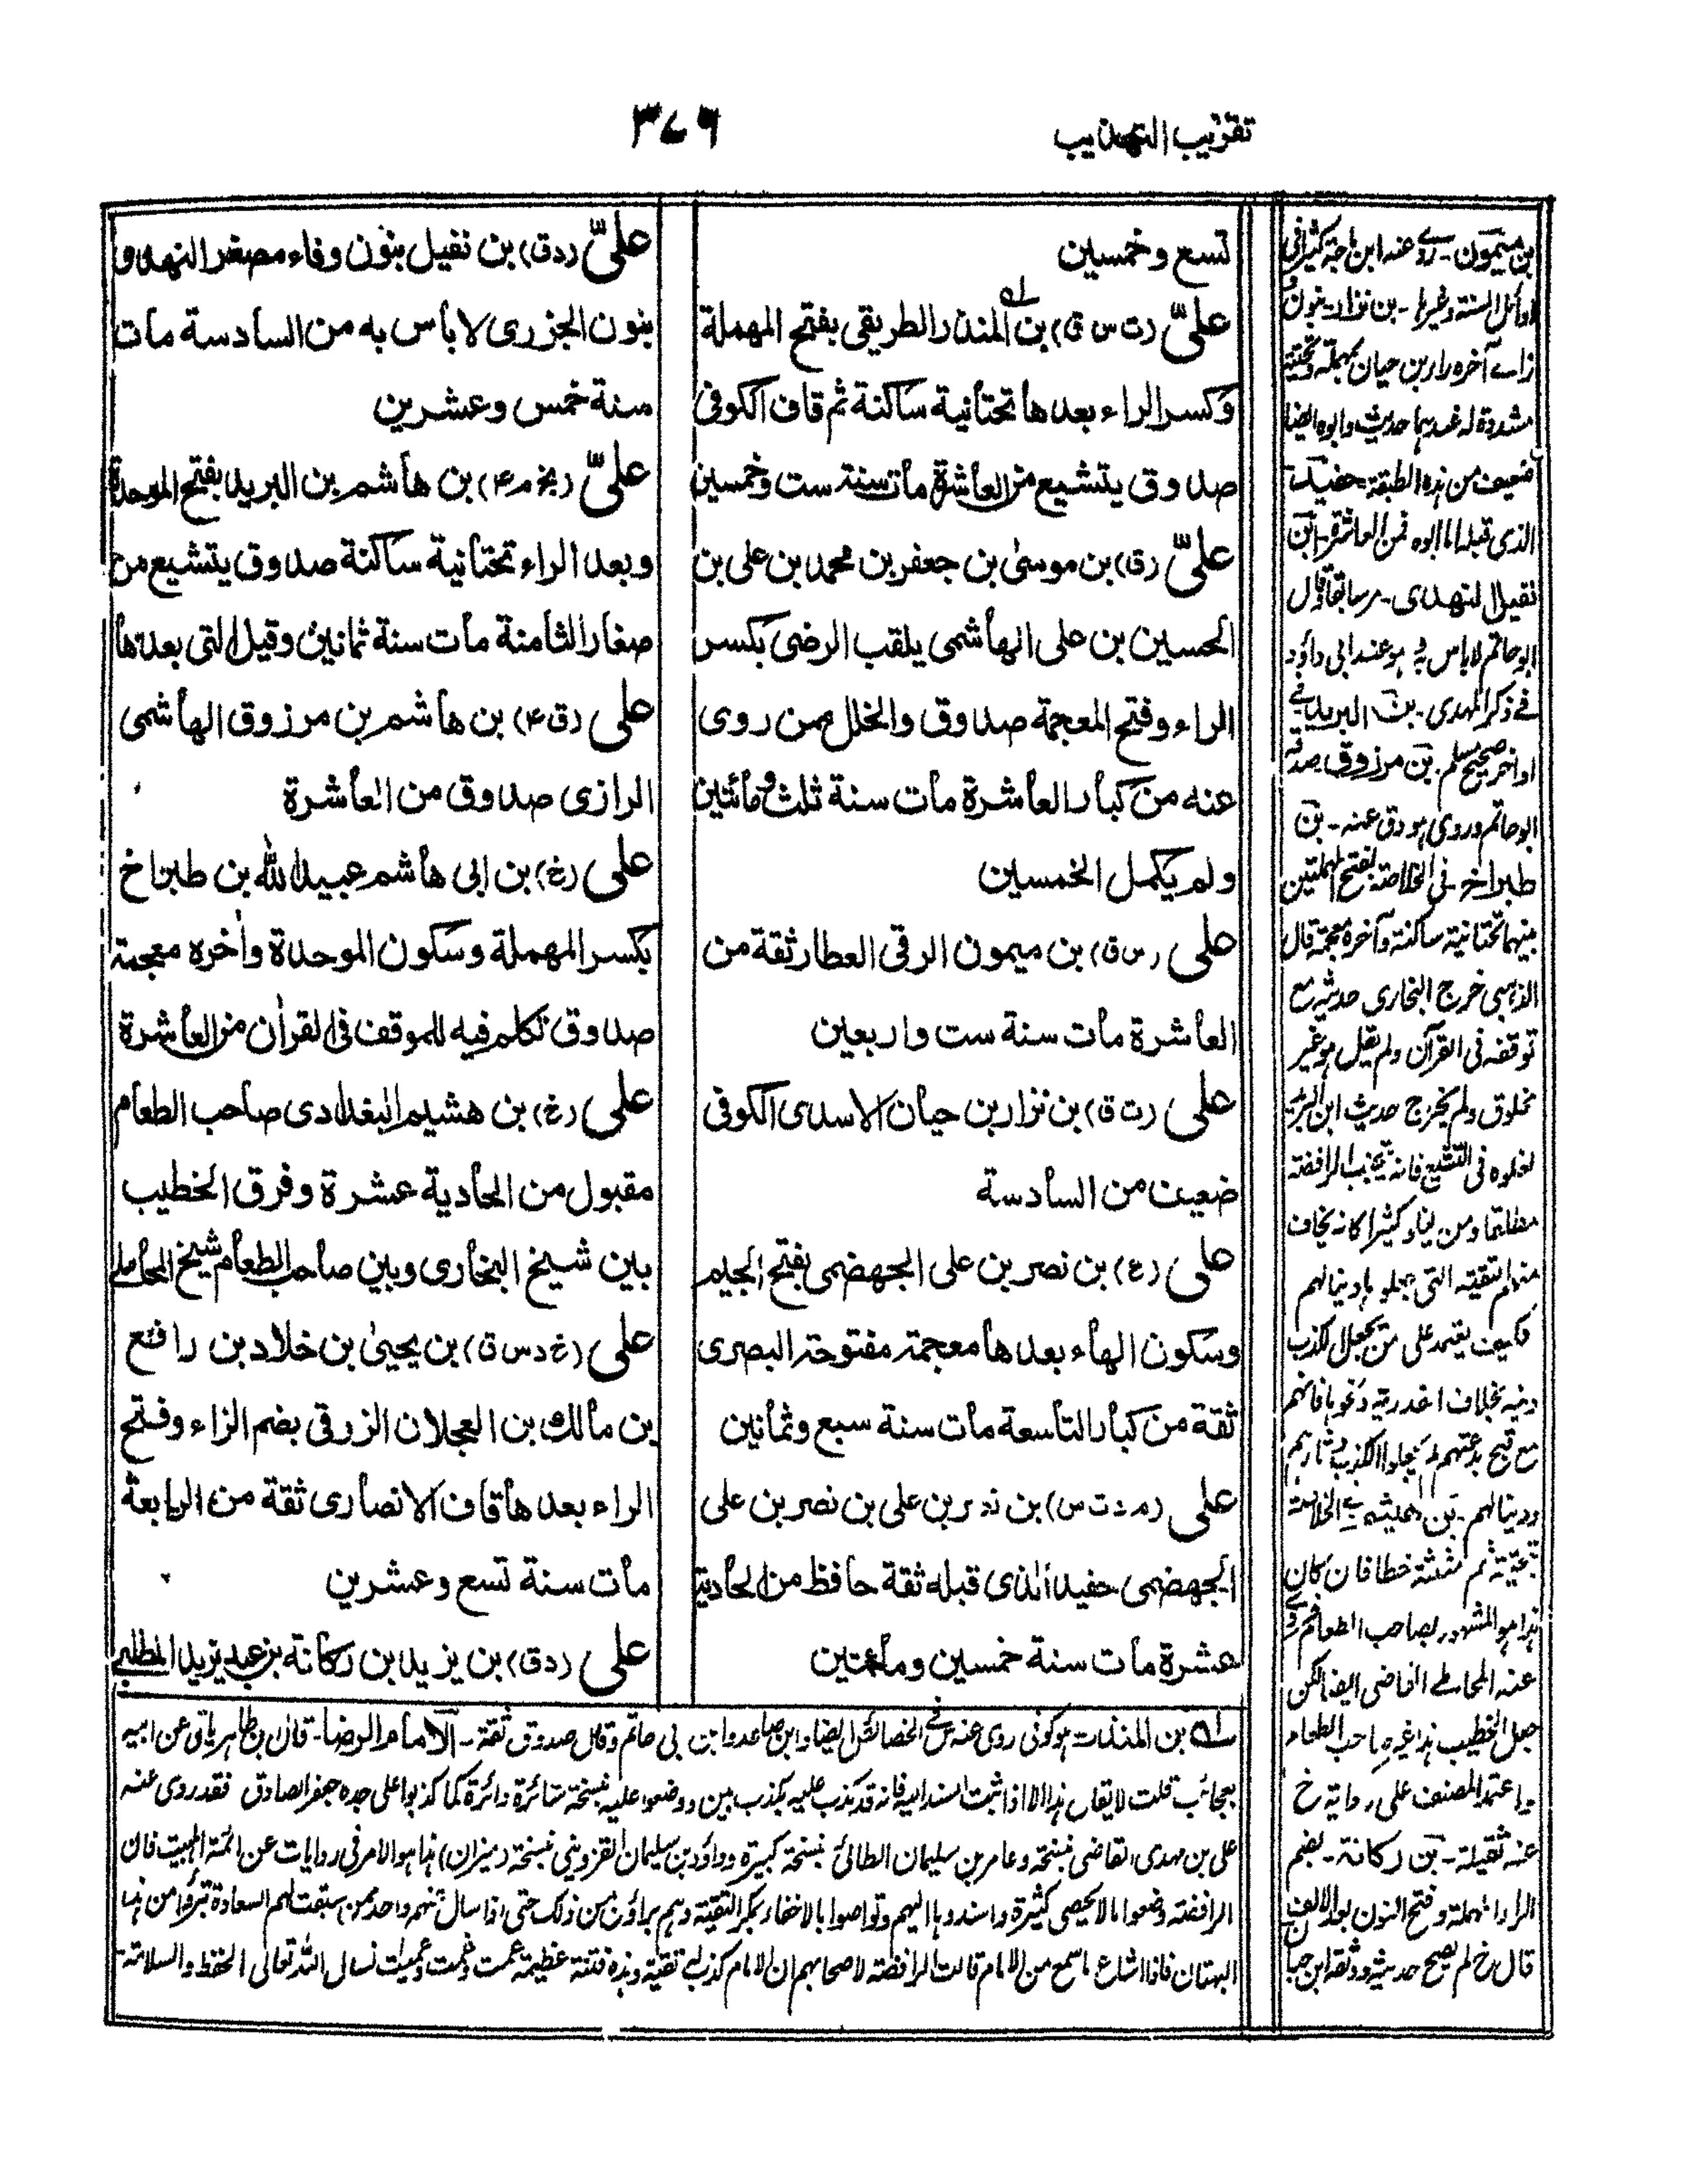 تقريب التهذيب
٣٧٦
تسع وخمسين
علىّ (ت س ق) بن المنذر الطريقى بفتح المهملة
وكسر الراء بعدها تحتانية ساكنة ثم قاف الكوفى
صدوق يتشيع من العاشرة مات سنة ست وخمسين
علىّ (ق) بن موسىٰ بن جعفر بن محمد بن على بن
الحسين بن على الهاشمى يلقب الرضى بكسر
الراء وفتح المعجمة صدوق والخلل ممن روى
عنه من كبار العاشرة مات سنة ثلث ومائتين
ولم يكمل الخمسين
على (س ق) بن ميمون الرقى العطار ثقة من
العاشرة مات سنة ست واربعين
على (ت ق) بن نزار بن حيان الاسدى الكوفى
ضعيف من السادسة
على (ع) بن نصر بن على الجهضمى بفتح الجيم
وسكون الهاء بعدها معجمة مفتوحة البصرى
ثقة من كبار التاسعة مات سنة سبع وثمانين
على (م د ت س) بن نصر بن على بن نصر بن على
الجهضمى حفيد الذى قبله ثقة حافظ من الحادية
عشرة مات سنة خمسين ومائتين
علىّ (د ق) بن نفيل بنون وفاء مصغر النهدى
بنون الجزرى لا بأس به من السادسة مات
سنة خمس وعشرين
علىّ (بخ م ۴) بن هاشم بن البريد بفتح الموحدة
وبعد الراء تحتانية ساكنة صدوق يتشيع من
صغار الثامنة مات سنة ثمانين وقيل التى بعدها
على (ق ۴) بن هاشم بن مرزوق الهاشمى
الرازى صدوق من العاشرة
على (خ) بن ابى هاشم عبيد الله بن طبراخ
بكسر المهملة وسكون الموحدة واٰخره معجمة
صدوق تكلم فيه للوقف فى القراٰن من العاشرة
على (خ) بن هشيم البغدادى صاحب الطعام
مقبول من الحادية عشرة وفرق الخطيب
بين شيخ البخارى وبين صاحب الطعام شيخ المحاملى
على (خ د س ق) بن يحيىٰ بن خلاد بن رافع
بن مالك بن العجلان الزرقى بضم الزاء وفتح
الراء بعدها قاف الانصارى ثقة من الرابعة
مات سنة تسع وعشرين
على (د ق) بن يزيد بن ركانة بن عبد يزيد المطلبى
بن ميمون - روى عنه ابن ماجة كثيرا فى
اوائل السنة وغيرها - بن نزار - بنون و
زاے آخره راء بن حيان بمهملة وتحتية
مشددة له عندهما حديث وابوه ايضا
ضعيف من هذه الطبقة - حفيد
الذى قبله اما ابوه فمن العاشرة - ابن
نفيل النهدى - مر سابقا قال
ابو حاتم لا باس به هو عند ابى داؤد
فے ذكر المهدى - بن البريد فے
اواخر صحيح مسلم - بن مرزوق صدقه
ابو حاتم وروى هو دق عنه - بن
طبراخ - فى الخلاصة بفتح المهملتين
بينهما تحتانية ساكنة وآخره معجمة قال
الذهبى خرج البخارى حديثه مع
توقفه فى القرآن ولم يقل هو غير
مخلوق ولم يخرج حديث ابن البريد
لغلوه فى التشيع فانه يتجنب الرافضة
كثيرا كانه يخاف
منهم التقية التى
فكيف يعتمد على من يجعل الكذب
دينه بخلاف القدرية ونحوها فانهم
مع قبح بدعتهم لم يجعلوا الكذب
دينا لهم - بن هشيم فے الخلاصة
هذا هو المشهور بصاحب الطعام روے
عنه المحاملے القاضى ايضا لكن
جعل الخطيب هذا غير صاحب الطعام
اعتمد المصنف على رواية خ
عنه - بن ركانة - بضم
الراء المهملة وفتح النون بعد الالف
قال خ لم يصح حديثه ووثقه ابن حبان
له بن المنذر هو كوفى روى عنه س فے الخصائص ايضا وابن صاعد وابن ابى حاتم وقال صدوق ثقة - الامام الرضا - قال ابن طاهر ياتى عن ابيه
بعجائب قلت لا يقال هذا الا اذا ثبت السند اليه فانه قد كذب عليه بكذب بين ووضعوا عليه نسخة سائرة دائرة كما كذبوا على جده جعفر الصادق فقد روى عنه
على بن مهدى القاضى نسخة وعامر بن سليمان الطائى نسخة كبيرة وداؤد بن سليمان القزوينى نسخة (ميزان) هذا هو الامر فى روايات عن ائمة اهل البيت فان
الرافضة وضعوا ما لا يحصى كثيرة واسندوها اليهم وتواصوا بالاخفاء بحكم التقية وهم براؤن من ذلك حتى اذا سال منهم واحد ممن سبقت لهم السعادة تبرؤا من هذا
البهتان فاذا شاع ما سمع من الامام قالت الرافضة لاصحابهم ان الامام كذب تقية وهذه فتنة عظيمة عمت وعميت نسال الله تعالى الحفظ والسلامة